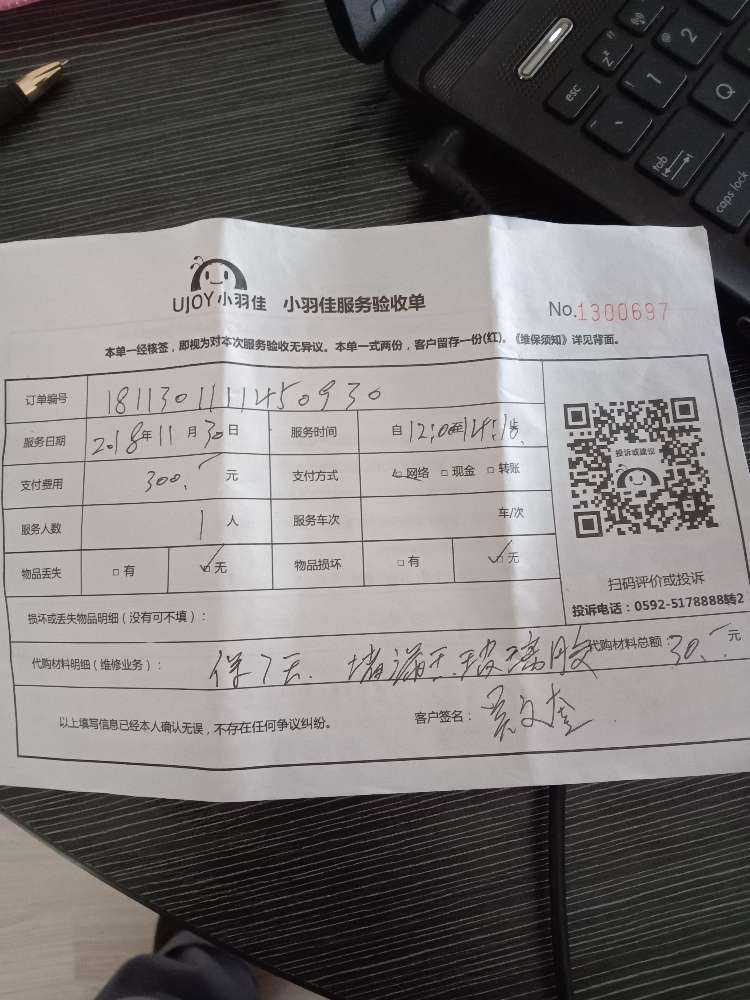 UJOY 小羽佳 小羽佳服务验收单 No.1300697
本单一经核签，即视为对本次服务验收无异议。本单一式两份，客户留存一份(红)。《维保须知》详见背面。
订单编号 1811301111450930
服务日期 2018年11月30日 服务时间 自12:00至14:10止
支付费用 300.- 元 支付方式 网络 现金 转账
服务人数 1 人 服务车次 车/次
物品丢失 有 无 物品损坏 有 无
投诉或建议
扫码评价或投诉
投诉电话：0592-5178888转2
损坏或丢失物品明细（没有可不填）：
代购材料明细（维修业务）： 保7天. 堵漏王.玻璃胶 代购材料总额：30.- 元
以上填写信息已经本人确认无误，不存在任何争议纠纷。 客户签名：
esc
1
2
Q
tab
caps lock